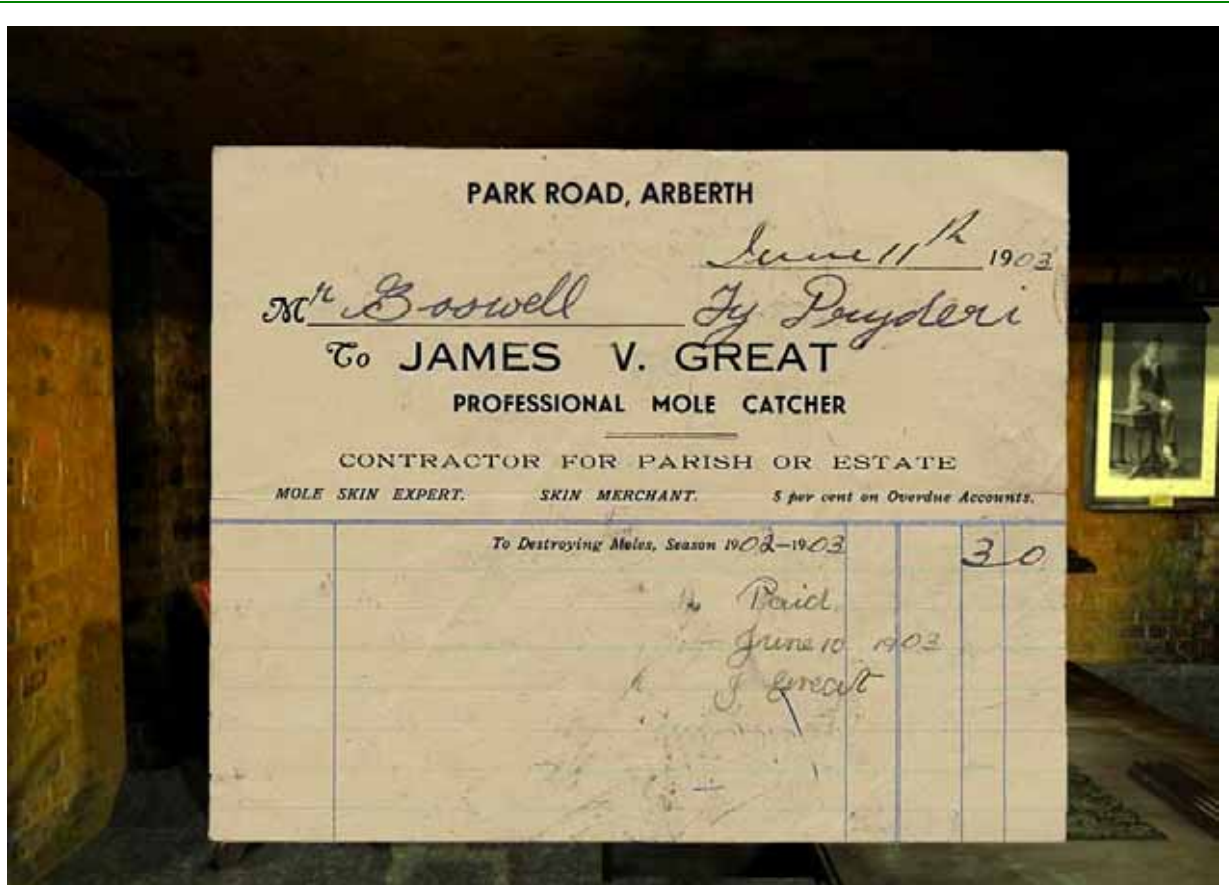 PARK ROAD, ARBERTH
June 11th 1903
Mr Boswell Ty Pryderi
To JAMES V. GREAT
PROFESSIONAL MOLE CATCHER
CONTRACTOR FOR PARISH OR ESTATE
MOLE SKIN EXPERT. SKIN MERCHANT. 5 per cent on Overdue Accounts.
To Destroying Moles, Season 1902-1903 3 0
Paid
June 10 1903
J Great